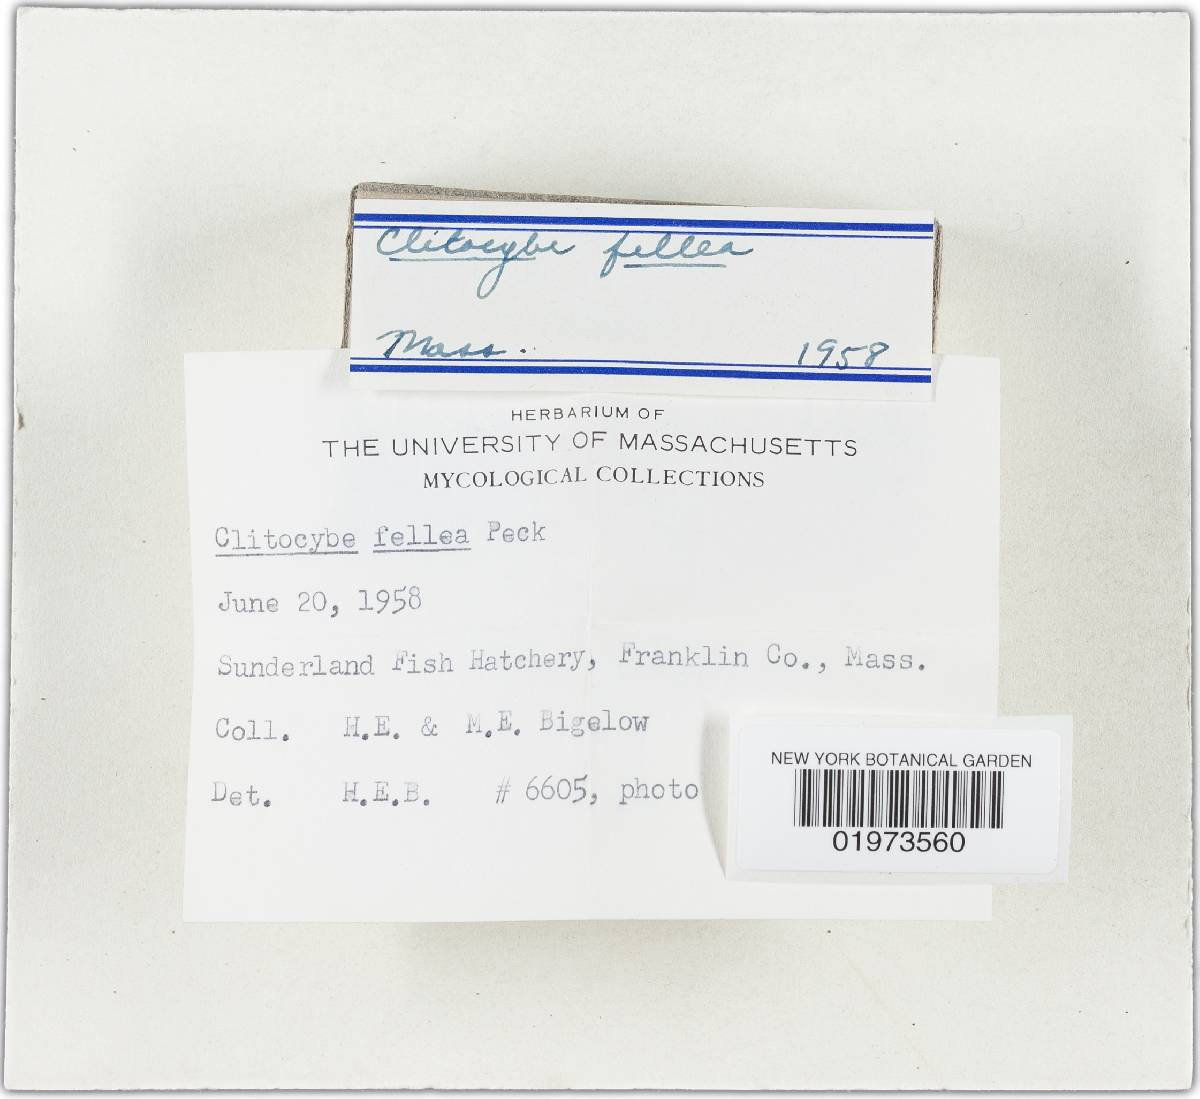 Clitocybe fellea
Mass. 1958
HERBARIUM OF
THE UNIVERSITY OF MASSACHUSETTS
MYCOLOGICAL COLLECTIONS
Clitocybe fellea Peck
June 20, 1958
Sunderland Fish Hatchery, Franklin Co., Mass.
Coll. H.E. & M.E. Bigelow
Det. H.E.B. # 6605, photo
NEW YORK BOTANICAL GARDEN
01973560